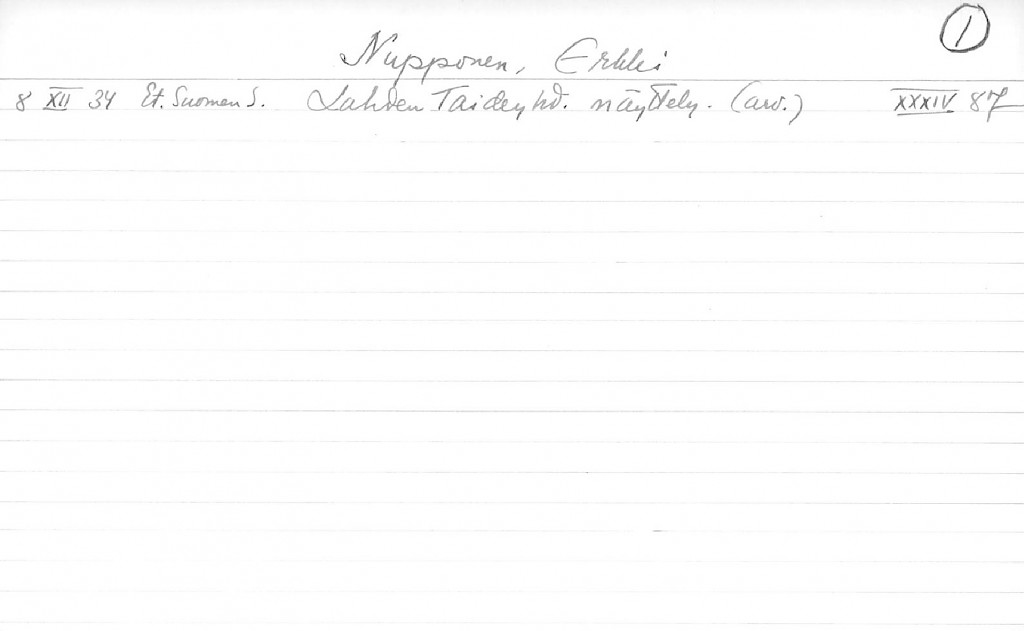 1
Nupponen, Erkki
8 XII 34 Et. Suomen S. Lahden Taideyhd. näyttely. (arv.) XXXIV 87